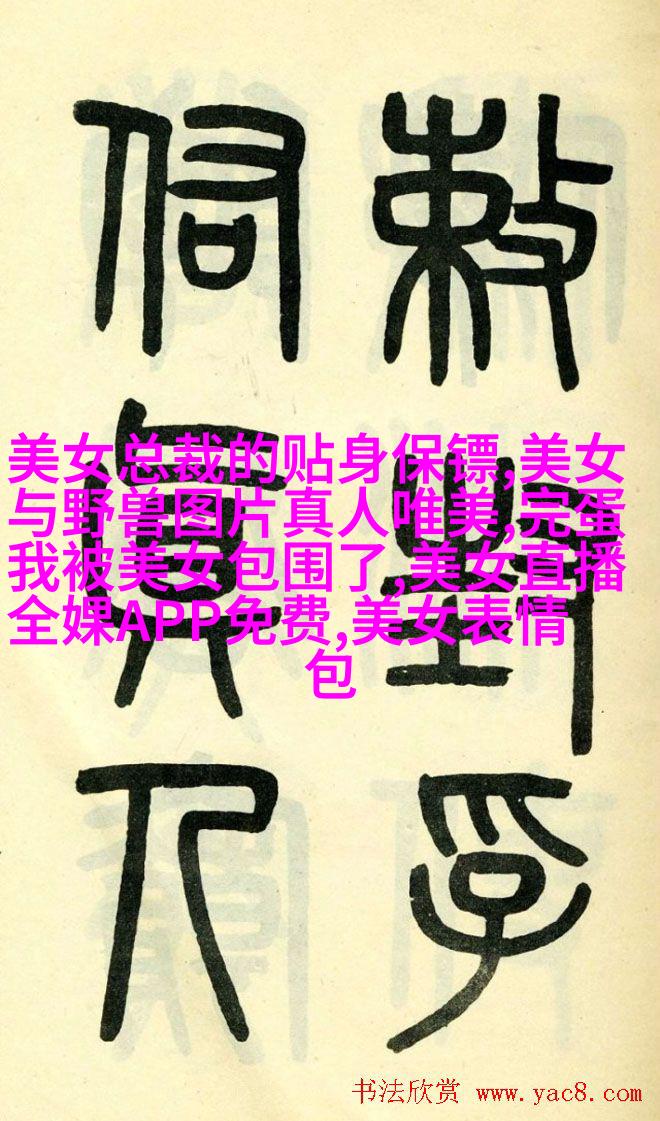 敕封孚
佑真人
美女总裁的贴身保镖,美女
与野兽图片真人唯美,完蛋
我被美女包围了,美女直播
全婐APP免费,美女表情
包
书法欣赏 www.yac8.com